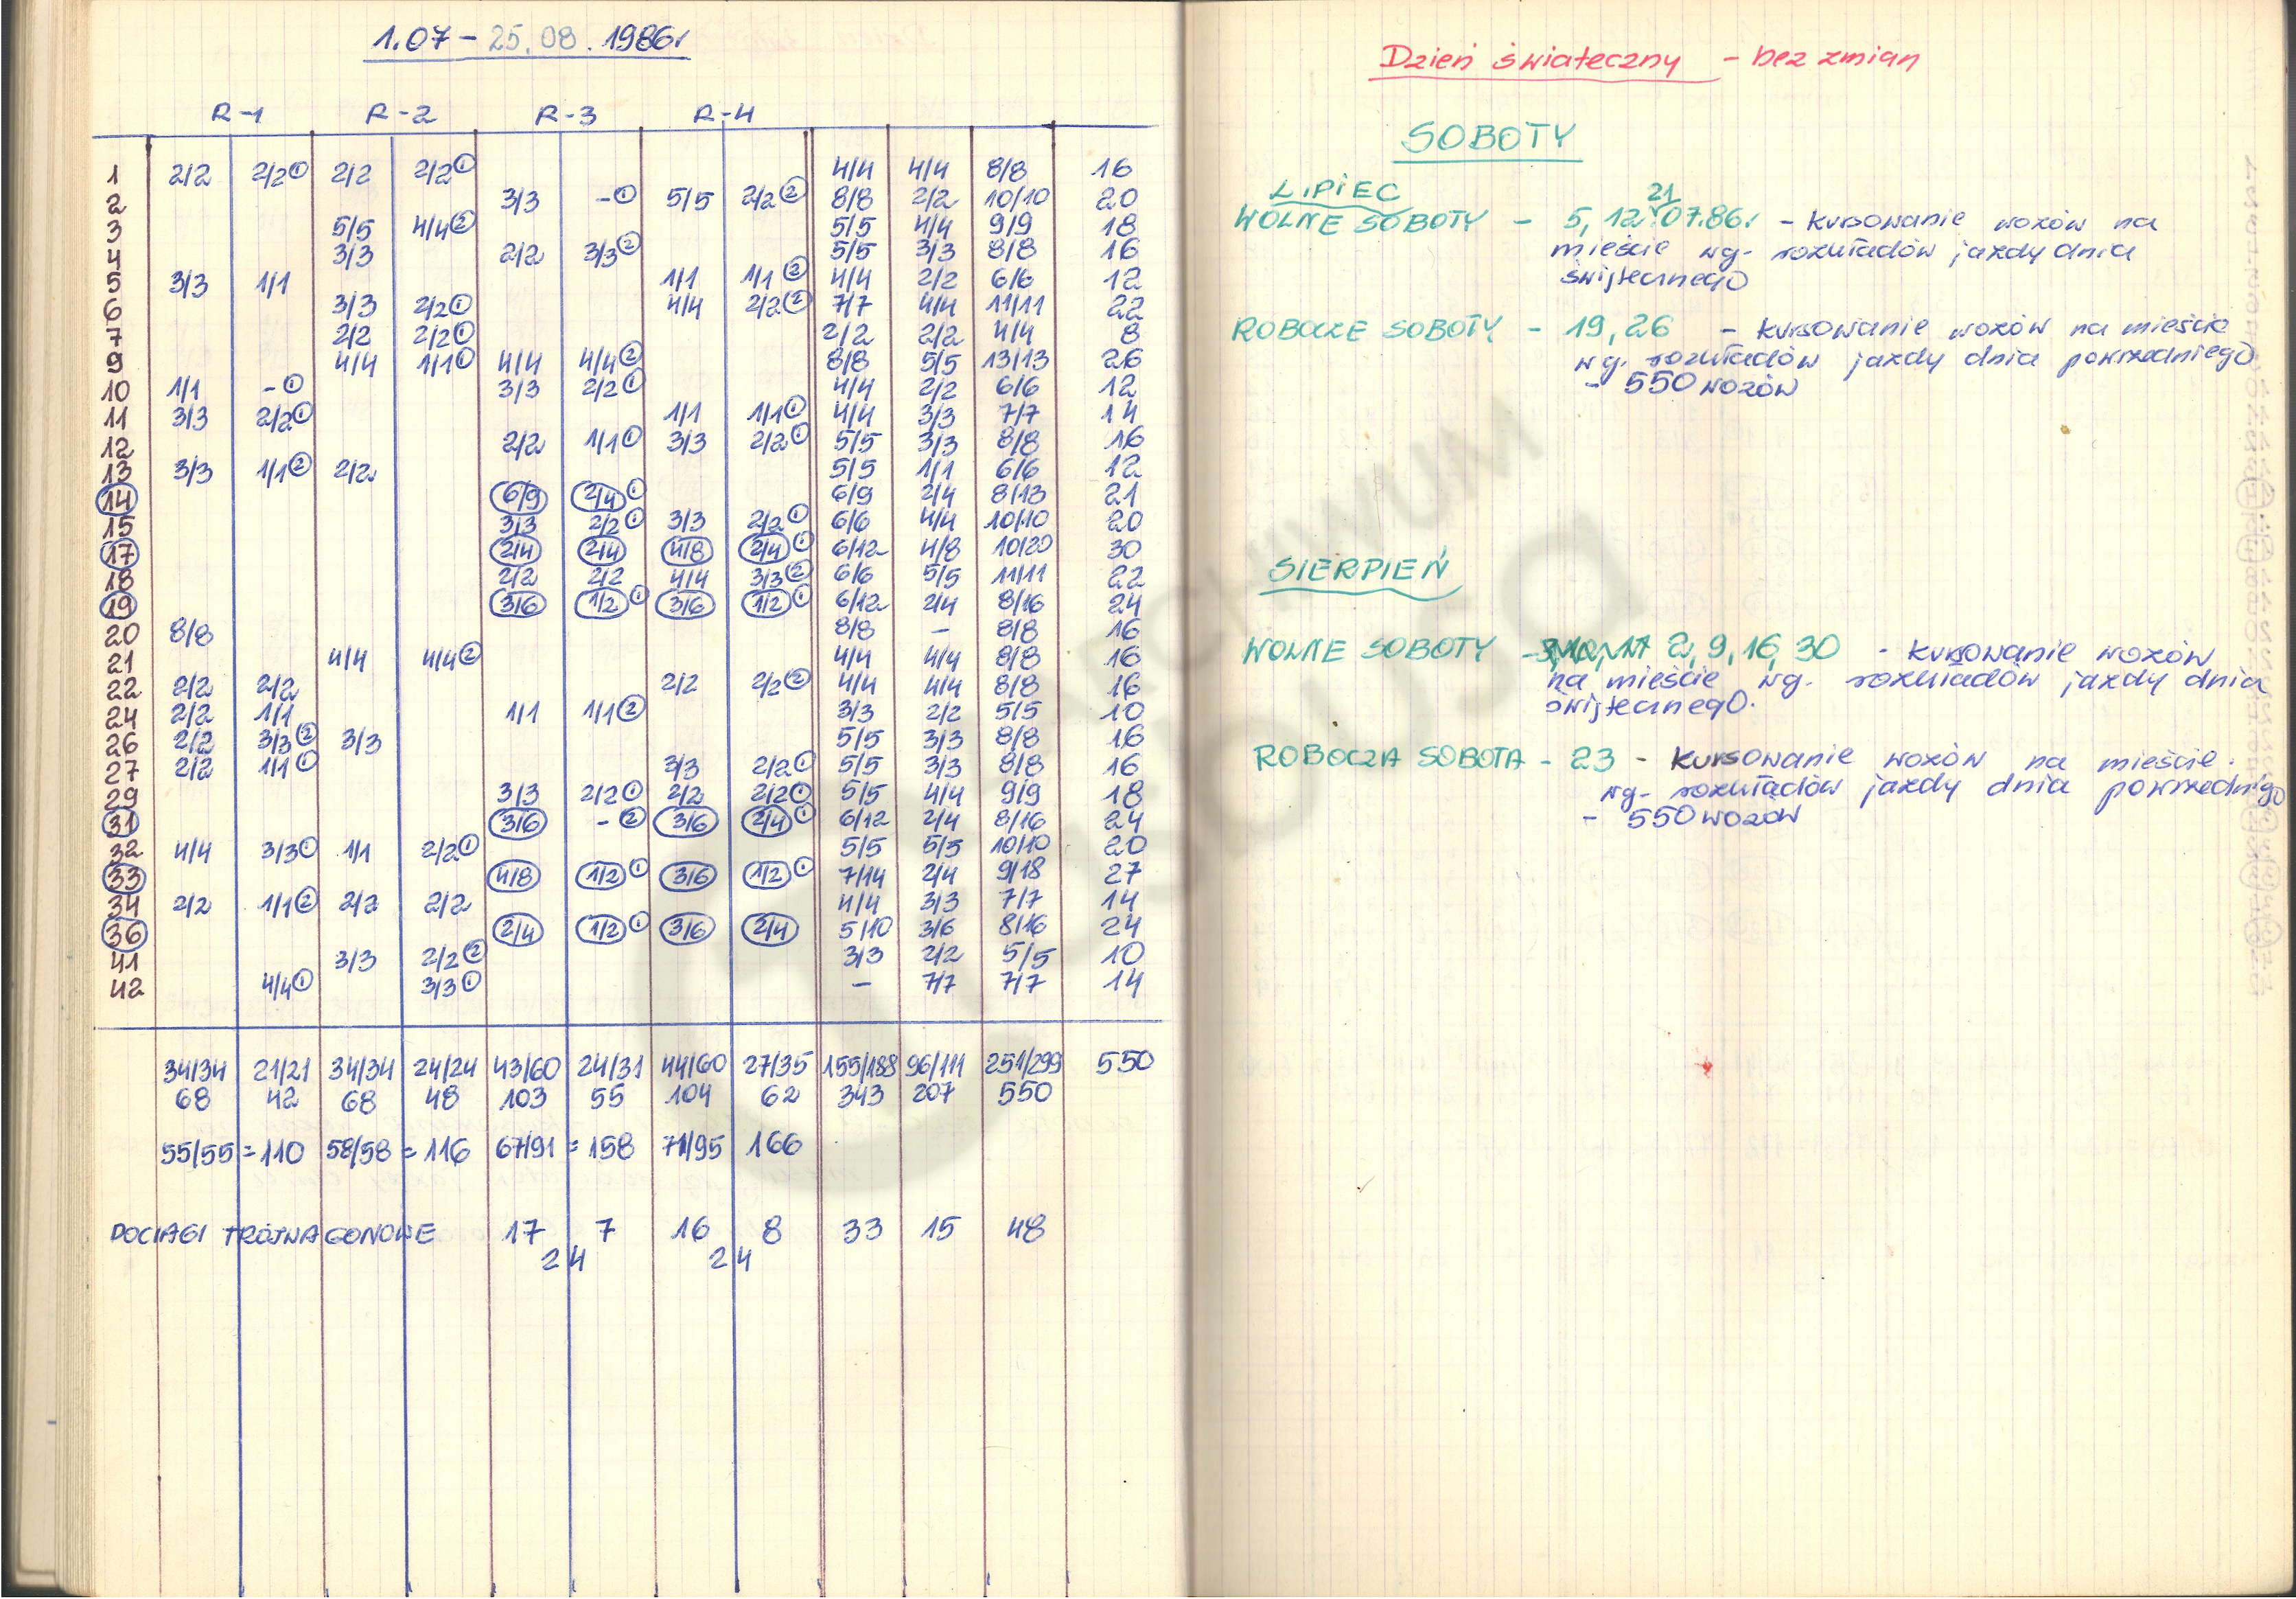 1.07 – 25.08.1986r
R-1 R-2 R-3 R-4
1 2/2 2/2① 2/2 2/2① 4/4 4/4 8/8 16
2 3/3 -① 5/5 2/2② 8/8 2/2 10/10 20
3 5/5 4/4② 5/5 4/4 9/9 18
4 3/3 2/2 3/3② 5/5 3/3 8/8 16
5 3/3 1/1 1/1 1/1② 4/4 2/2 6/6 12
6 3/3 2/2① 4/4 2/2② 7/7 4/4 11/11 22
7 2/2 2/2① 2/2 2/2 4/4 8
9 4/4 1/1① 4/4 4/4② 8/8 5/5 13/13 26
10 1/1 -① 3/3 2/2① 4/4 2/2 6/6 12
11 3/3 2/2① 1/1 1/1① 4/4 3/3 7/7 14
12 2/2 1/1① 3/3 2/2① 5/5 3/3 8/8 16
13 3/3 1/1② 2/2 5/5 1/1 6/6 12
14 6/9 2/4① 6/9 2/4 8/13 21
15 3/3 2/2① 3/3 2/2① 6/6 4/4 10/10 20
17 2/4 2/4 4/8 2/4① 6/12 4/8 10/20 30
18 2/2 2/2 4/4 3/3② 6/6 5/5 11/11 22
19 3/6 1/2① 3/6 1/2① 6/12 2/4 8/16 24
20 8/8 8/8 – 8/8 16
21 4/4 4/4② 4/4 4/4 8/8 16
22 2/2 2/2 2/2 2/2② 4/4 4/4 8/8 16
24 2/2 1/1 1/1 1/1② 3/3 2/2 5/5 10
26 2/2 3/3② 3/3 5/5 3/3 8/8 16
27 2/2 1/1① 3/3 2/2① 5/5 3/3 8/8 16
29 3/3 2/2① 2/2 2/2① 5/5 4/4 9/9 18
31 3/6 -② 3/6 2/4① 6/12 2/4 8/16 24
32 4/4 3/3① 1/1 2/2① 5/5 5/5 10/10 20
33 4/8 1/2① 3/6 1/2① 7/14 2/4 9/18 27
34 2/2 1/1② 2/2 2/2 4/4 3/3 7/7 14
36 2/4 1/2① 3/6 2/4 5/10 3/6 8/16 24
41 3/3 2/2② 3/3 2/2 5/5 10
42 4/4① 3/3① – 7/7 7/7 14
34/34 21/21 34/34 24/24 43/60 24/31 44/60 27/35 155/188 96/111 251/299 550
68 42 68 48 103 55 104 62 343 207 550
55/55 = 110 58/58 = 116 67/91 = 158 71/95 166
POCIĄGI TRÓJWAGONOWE 17 7 16 8 33 15 48
24 24
Dzień świateczny – bez zmian
SOBOTY
LIPIEC
21
WOLNE SOBOTY – 5, 12 07.86r – kursowanie wozów na
mieście wg. rozkładów jazdy dnia
świątecznego
ROBOCZE SOBOTY – 19, 26 – kursowanie wozów na mieście
wg. rozkładów jazdy dnia powszedniego
– 550 wozów
SIERPIEŃ
WOLNE SOBOTY – 2, 9, 16, 30 – kursowanie wozów
na mieście wg. rozkładów jazdy dnia
świątecznego.
ROBOCZA SOBOTA – 23 – kursowanie wozów na mieście.
wg. rozkładów jazdy dnia powszedniego
– 550 wozów
ARCHIWUM